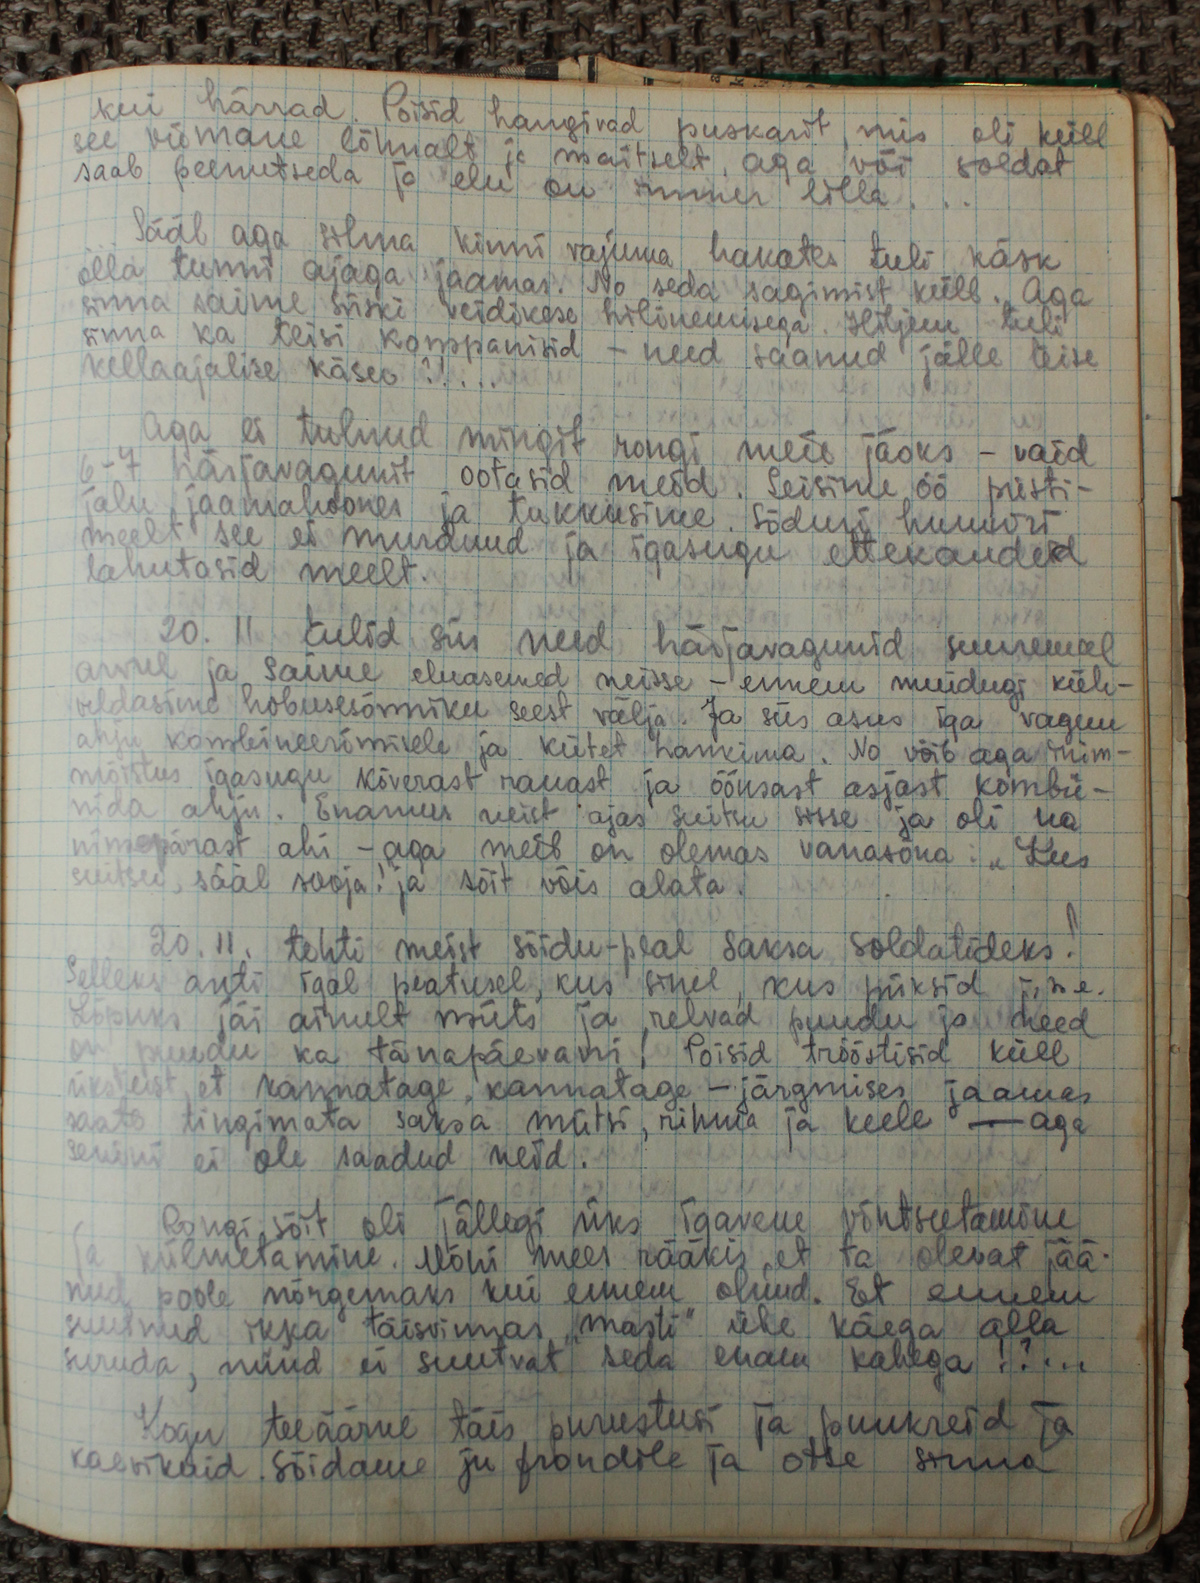 kui härrad. Poisid hangivad puskarit, mis oli küll
see viimane lõhnalt ja maitselt, aga või soldat
saab peenutseda ja elu on immer lilla . . .
Sääl aga silma kinni vajuma hakates tuli käsk
olla tunni ajaga jaamas. No seda sagimist küll. Aga
sinna saime siiski veidikese hilinemisega. Hiljem tuli
sinna ka teisi kompaniisid – need saanud jälle teise
kellaajalise käsu ?!...
Aga ei tulnud mingit rongi meie jaoks – vaid
6-7 härjavagunit ootasid meid. Seisime öö püsti-
jalu jaamahoones ja tukkusime. Sõduri huumori
meelt see ei murdnud ja igasugu ettekanded
lahutasid meelt.
20. II tulid siis need härjavagunid suuremal
arvul ja saime eluasemed neisse – ennem muidugi küh-
veldasime hobusesõnniku seest välja. Ja siis asus iga vagun
ahju kombineerimisele ja kütet hankima. No võib aga inim-
mõistus igasugu kõverast rauast ja õõnsast asjast kombi-
nida ahju. Enamus neist ajas suitsu sisse ja oli ka
nimepärast ahi – aga meil on olemas vanasõna: „Kus
suitsu, sääl sooja!" ja sõit võis alata.
20. II. tehti meist sõidu-peal saksa soldatideks!
Selleks anti igal peatusel, kus sinel, kus püksid j.n.e.
Lõpuks jäi ainult müts ja relvad puudu ja need
on puudu ka tänapäevani! Poisid trööstisid küll
üksteist, et kannatage, kannatage – järgmises jaamas
saate tingimata saksa mütsi, rihma ja keele — aga
senini ei ole saadud neid.
Rongisõit oli jällegi üks igavene võntsutamine
ja külmetamine. Mõni mees rääkis, et ta olevat jää-
nud poole nõrgemaks kui ennem olnud. Et ennem
suutnud ikka täisvinnas „masti" ühe käega alla
suruda, nüüd ei suutvat seda enam kahega !?...
Kogu teeäärne täis purustusi ja punkreid ja
kaevikuid. Sõidame ju frondile ja otse sinna